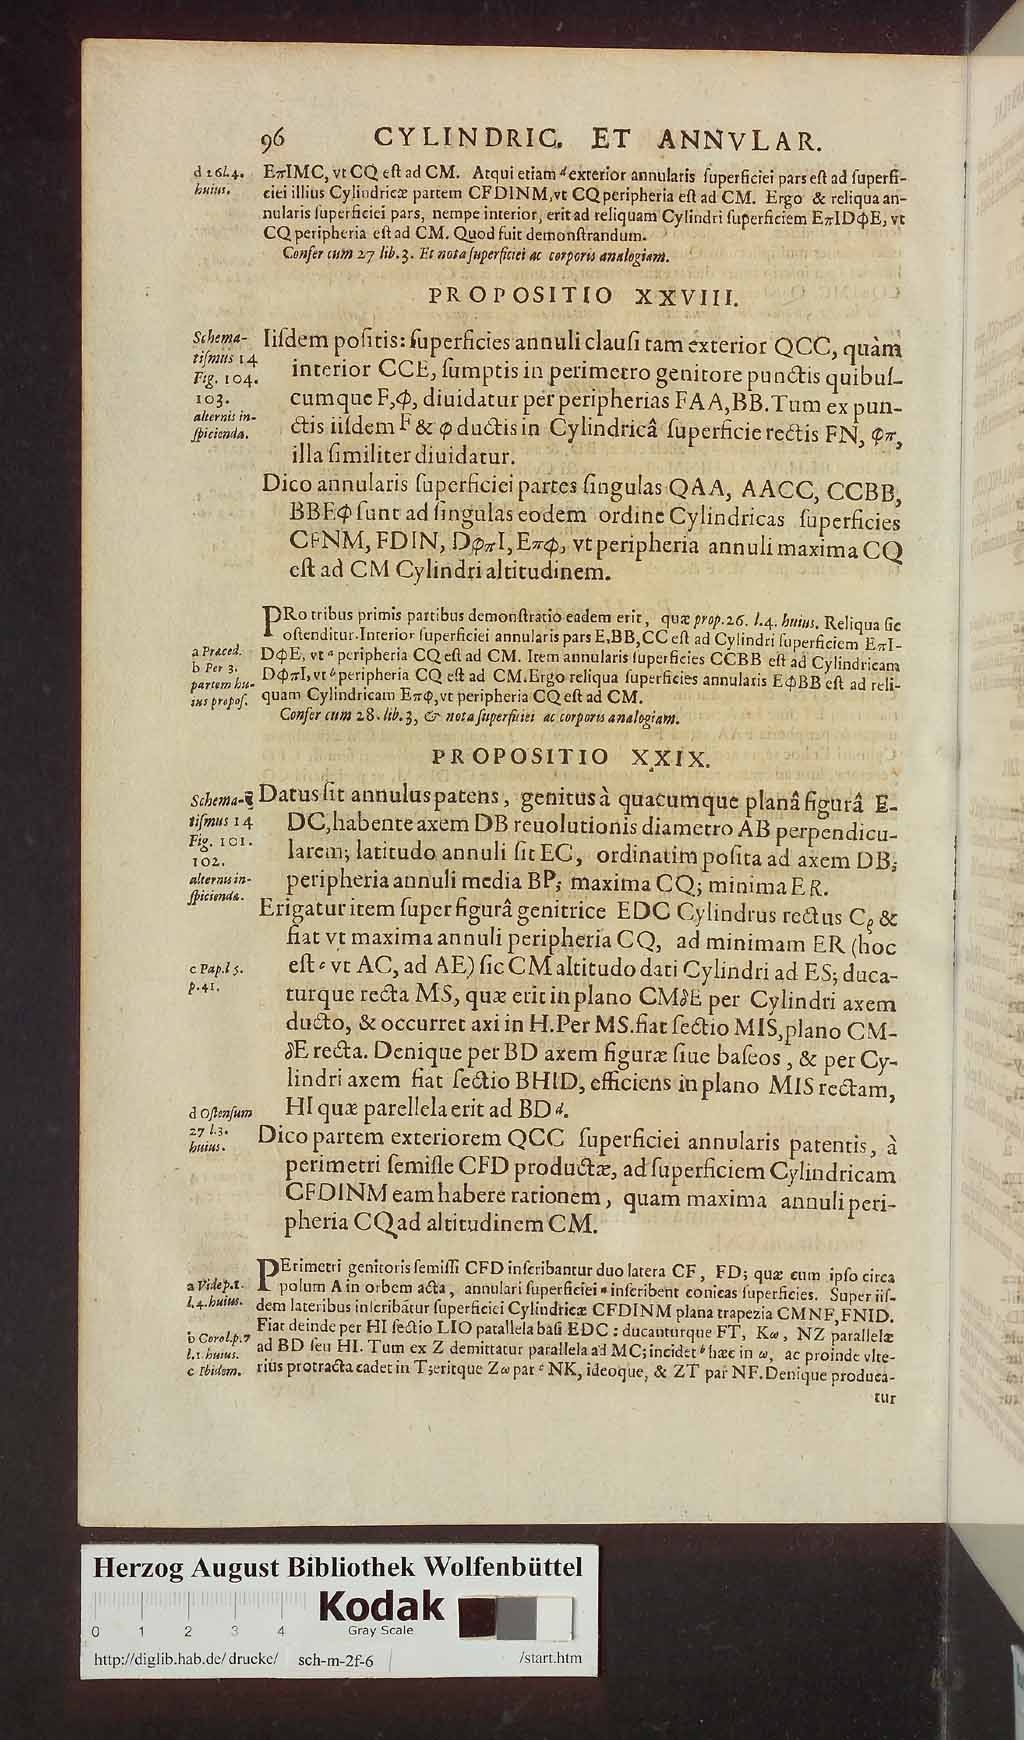 96 CYLINDRIC. ET ANNVLAR.
d 26 l.4.
huius.
EπIMC, vt CQ eſt ad CM. Atqui etiam d exterior annularis ſuperficiei pars eſt ad ſuperfi-
ciei illius Cylindricæ partem CFDINM, vt CQ peripheria eſt ad CM. Ergo & reliqua an-
nularis ſuperficiei pars, nempe interior, erit ad reliquam Cylindri ſuperficiem EπIDΦE, vt
CQ peripheria eſt ad CM. Quod fuit demonſtrandum.
Confer cum 27 lib. 3. Et nota ſuperficiei ac corporis analogiam.
PROPOSITIO XXVIII.
Schema-
tiſmus 14
Fig. 104.
103.
alternis in-
ſpicienda.
Iiſdem poſitis: ſuperficies annuli clauſi tam exterior QCC, quàm
interior CCE, ſumptis in perimetro genitore punctis quibuſ-
cumque F, φ, diuidatur per peripherias FAA, BB. Tum ex pun-
ctis iiſdem F & φ ductis in Cylindricâ ſuperficie rectis FN, φπ,
illa ſimiliter diuidatur.
Dico annularis ſuperficiei partes ſingulas QAA, AACC, CCBB,
BBEΦ ſunt ad ſingulas eodem ordine Cylindricas ſuperficies
CFNM, FDIN, DφπI, Eπφ, vt peripheria annuli maxima CQ
eſt ad CM Cylindri altitudinem.
PRo tribus primis partibus demonſtratio eadem erit, quæ prop. 26. l.4. huius. Reliqua ſic
oſtenditur. Interior ſuperficiei annularis pars E, BB, CC eſt ad Cylindri ſuperficiem EπI-
DΦE, vt a peripheria CQ eſt ad CM. Item annularis ſuperficies CCBB eſt ad Cylindricam
DΦπI, vt b peripheria CQ eſt ad CM. Ergo reliqua ſuperficies annularis EΦBB eſt ad reli-
quam Cylindricam Eπφ, vt peripheria CQ eſt ad CM.
Confer cum 28. lib. 3, & nota ſuperficiei ac corporis analogiam.
a Præced.
b Per 3.
partem hu-
ius propoſ.
PROPOSITIO XXIX.
Schema-
tiſmus 14
Fig. 101.
102.
alternis in-
ſpicienda.
Datus ſit annulus patens, genitus à quacumque planâ figurâ E-
DC, habente axem DB reuolutionis diametro AB perpendicu-
larem; latitudo annuli ſit EC, ordinatim poſita ad axem DB;
peripheria annuli media BP; maxima CQ; minima ER.
Erigatur item ſuper figurâ genitrice EDC Cylindrus rectus Cρ &
fiat vt maxima annuli peripheria CQ, ad minimam ER (hoc
eſt c vt AC, ad AE) ſic CM altitudo dati Cylindri ad ES; duca-
turque recta MS, quæ erit in plano CMδE per Cylindri axem
ducto, & occurret axi in H. Per MS. fiat ſectio MIS, plano CM-
δE recta. Denique per BD axem figuræ ſiue baſeos, & per Cy-
lindri axem fiat ſectio BHID, efficiens in plano MIS rectam,
HI quæ parellela erit ad BD d.
c Pap. l 5.
p. 41.
d Oſtenſum
27 l.3.
huius.
Dico partem exteriorem QCC ſuperficiei annularis patentis, à
perimetri ſemiſſe CFD productæ, ad ſuperficiem Cylindricam
CFDINM eam habere rationem, quam maxima annuli peri-
pheria CQ ad altitudinem CM.
PErimetri genitoris ſemiſſi CFD inſcribantur duo latera CF, FD; quæ cum ipſo circa
polum A in orbem acta, annulari ſuperficiei a inſcribent conicas ſuperficies. Super iiſ-
dem lateribus inſcribãtur ſuperficiei Cylindricæ CFDINM plana trapezia CMNF, FNID.
Fiat deinde per HI ſectio LIO parallela baſi EDC: ducanturque FT, Kω, NZ parallelæ
ad BD ſeu HI. Tum ex Z demittatur parallela ad MC; incidet b hæc in ω, ac proinde vlte-
rius protracta cadet in T; eritque Zω par c NK, ideoque, & ZT par NF. Denique produca-
tur
a Vide p. 1.
l.4. huius.
b Corol. p. 7
l. 1. huius.
c Ibidem.
Herzog August Bibliothek Wolfenbüttel
Kodak
Gray Scale
0 1 2 3 4
http://diglib.hab.de/drucke/ sch-m-2f-6 /start.htm